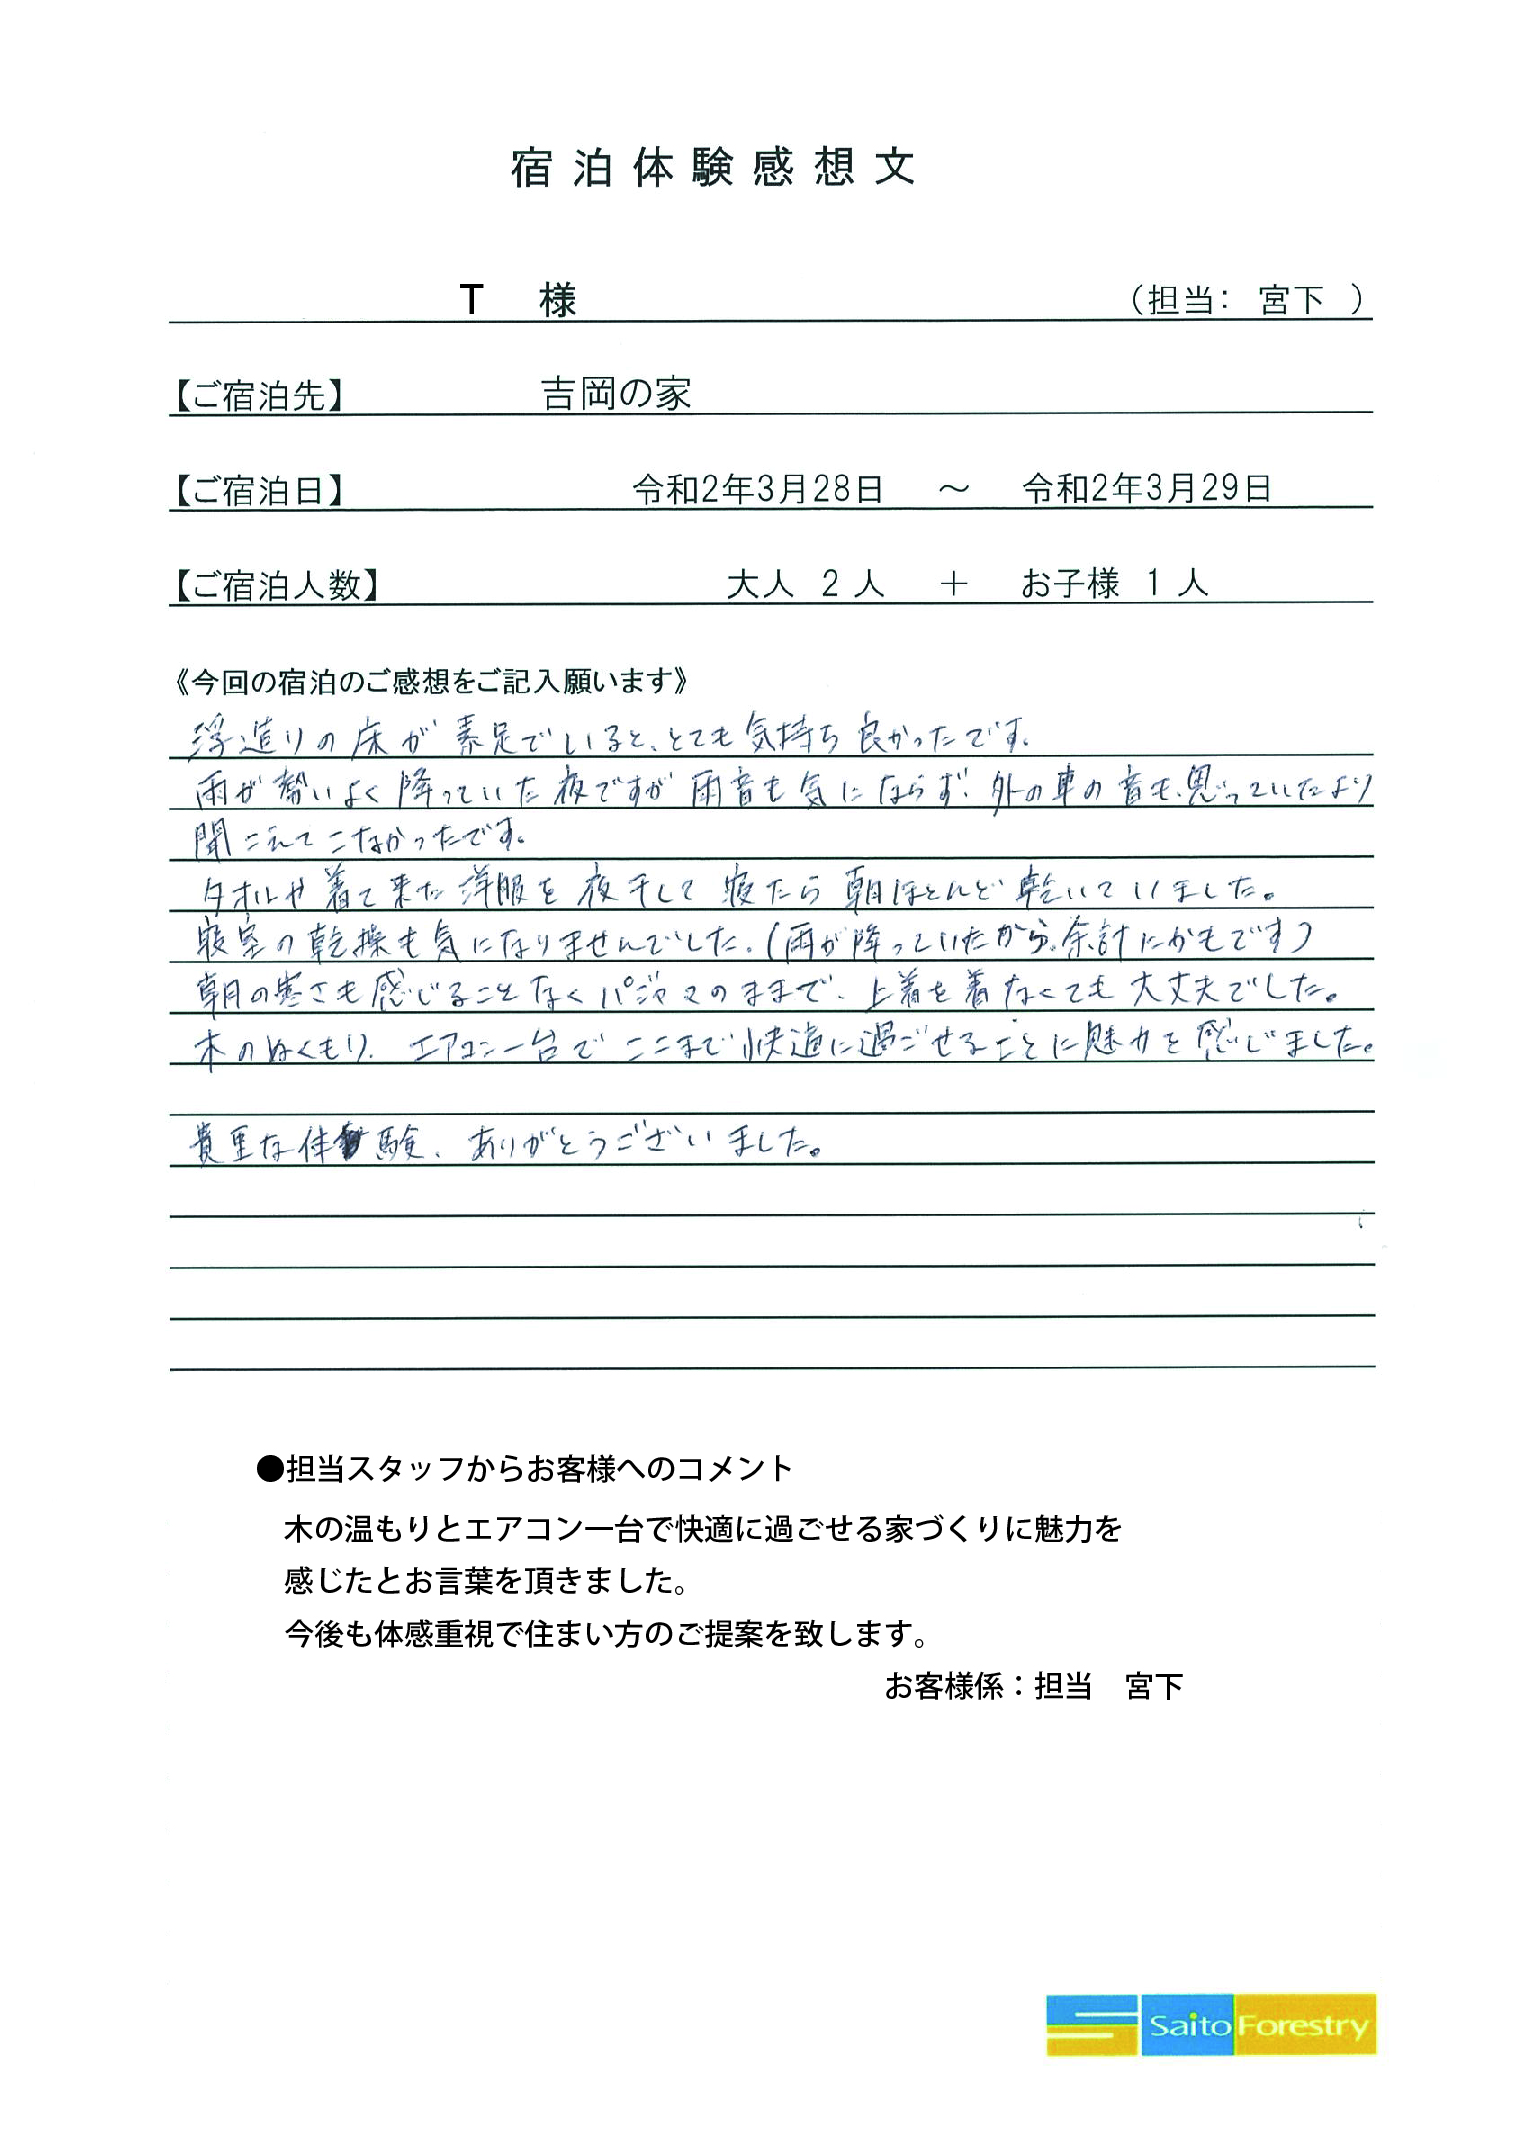 宿泊体験感想文
T 様 (担当: 宮下 )
【ご宿泊先】 吉岡の家
【ご宿泊日】 令和2年3月28日 ～ 令和2年3月29日
【ご宿泊人数】 大人 2 人 ＋ お子様 1 人
《今回の宿泊のご感想をご記入願います》
浮造りの床が素足でいると、とても気持ち良かったです。
雨が勢いよく降っていた夜ですが雨音も気にならず、外の車の音も、思っていたより
聞こえてこなかったです。
タオルや着て来た洋服を夜干して寝たら朝ほとんど乾いていました。
寝室の乾操も気になりませんでした。(雨が降っていたから、余計にかもです)
朝の寒さも感じることなくパジャマのままで、上着を着なくても大丈夫でした。
木のぬくもり、エアコン一台でここまで快適に過ごせることに魅力を感じました。
貴重な体験、ありがとうございました。
●担当スタッフからお客様へのコメント
木の温もりとエアコン一台で快適に過ごせる家づくりに魅力を
感じたとお言葉を頂きました。
今後も体感重視で住まい方のご提案を致します。
お客様係：担当 宮下
Saito Forestry